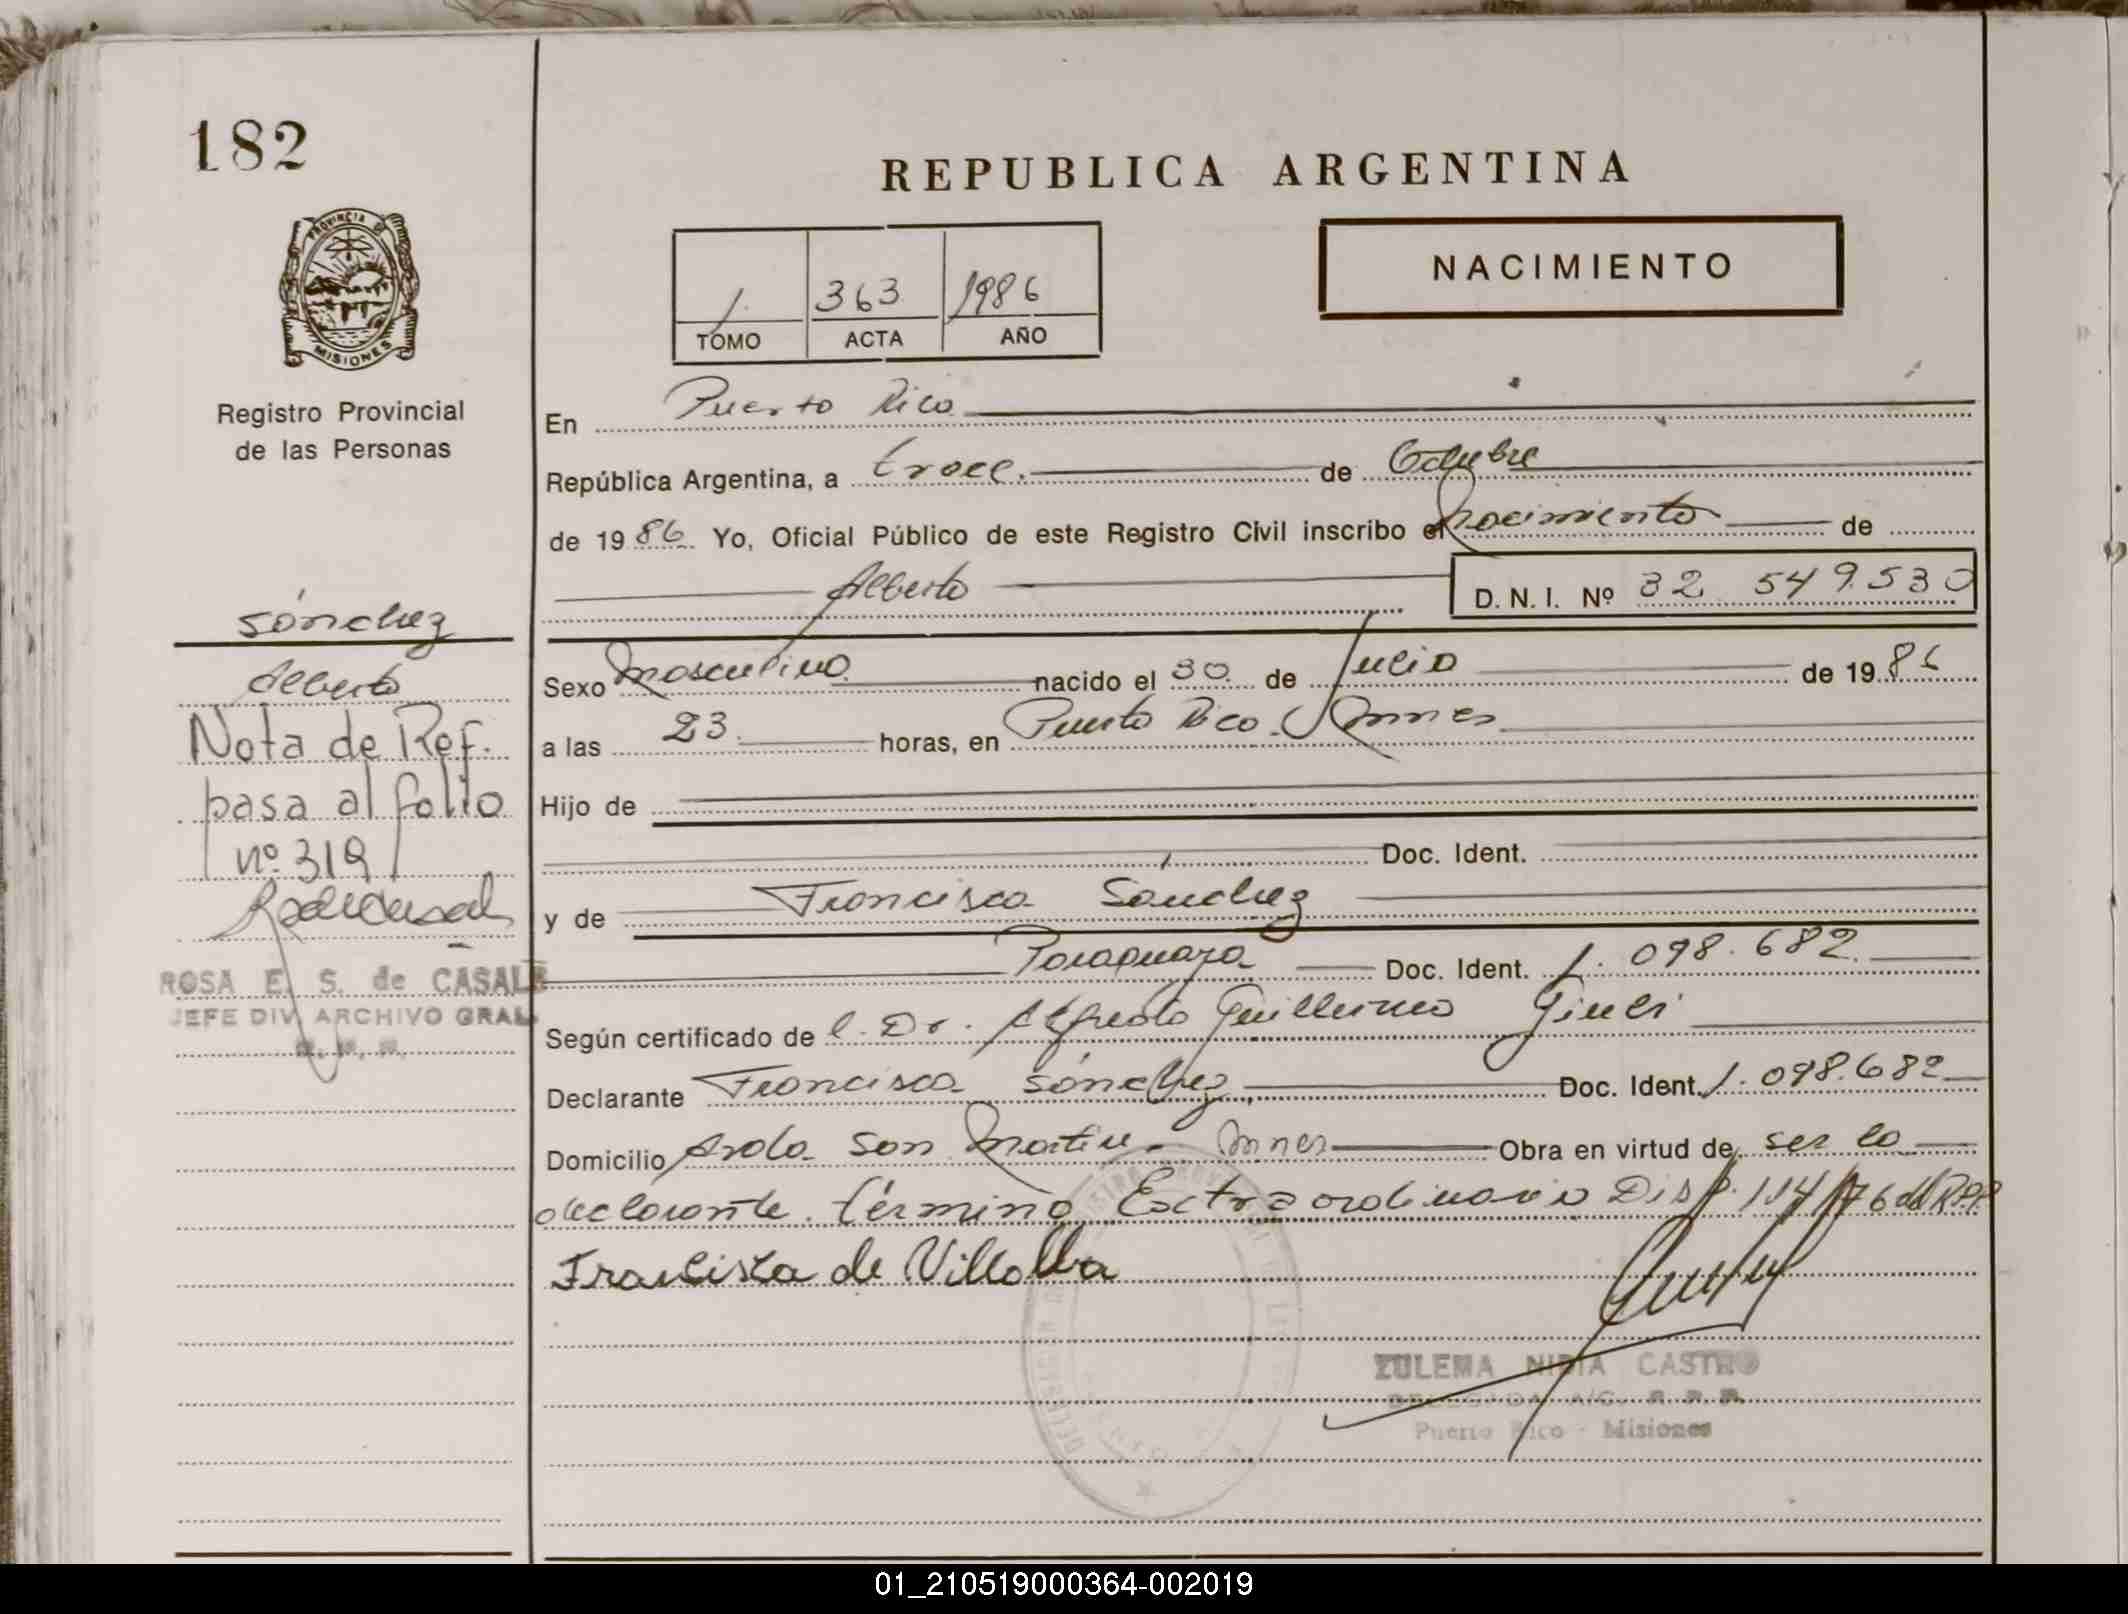 182
REPUBLICA ARGENTINA
PROVINCIA DE
MISIONES
Registro Provincial
de las Personas
1 363 1986
TOMO ACTA AÑO
NACIMIENTO
En Puerto Rico
República Argentina, a trece. de Octubre
de 1986 Yo, Oficial Público de este Registro Civil inscribo el nacimiento de
Alberto D. N. I. Nº 32 549.530
Sexo masculino nacido el 30 de Julio de 1986
a las 23 horas, en Puerto Rico - Mnes
Hijo de
Doc. Ident.
y de Francisca Sánchez
Paraguaya Doc. Ident. 1.098.682
Según certificado de l. Dr. Alfredo Guillermo
Declarante Francisca Sánchez Doc. Ident. 1.098.682
Domicilio Avda San Martin - Mnes Obra en virtud de ser la
declarante. término Extraordinario Disp. 114/76 del R.P.P.
Francisca de Villalba
ZULEMA NIDIA CASTRO
DELEGADA A/C. R. P. P.
Puerto Rico - Misiones
Sánchez
Alberto
Nota de Ref.
pasa al folio
nº 319
ROSA E. S. de CASALE
JEFE DIV. ARCHIVO GRAL.
01_210519000364-002019